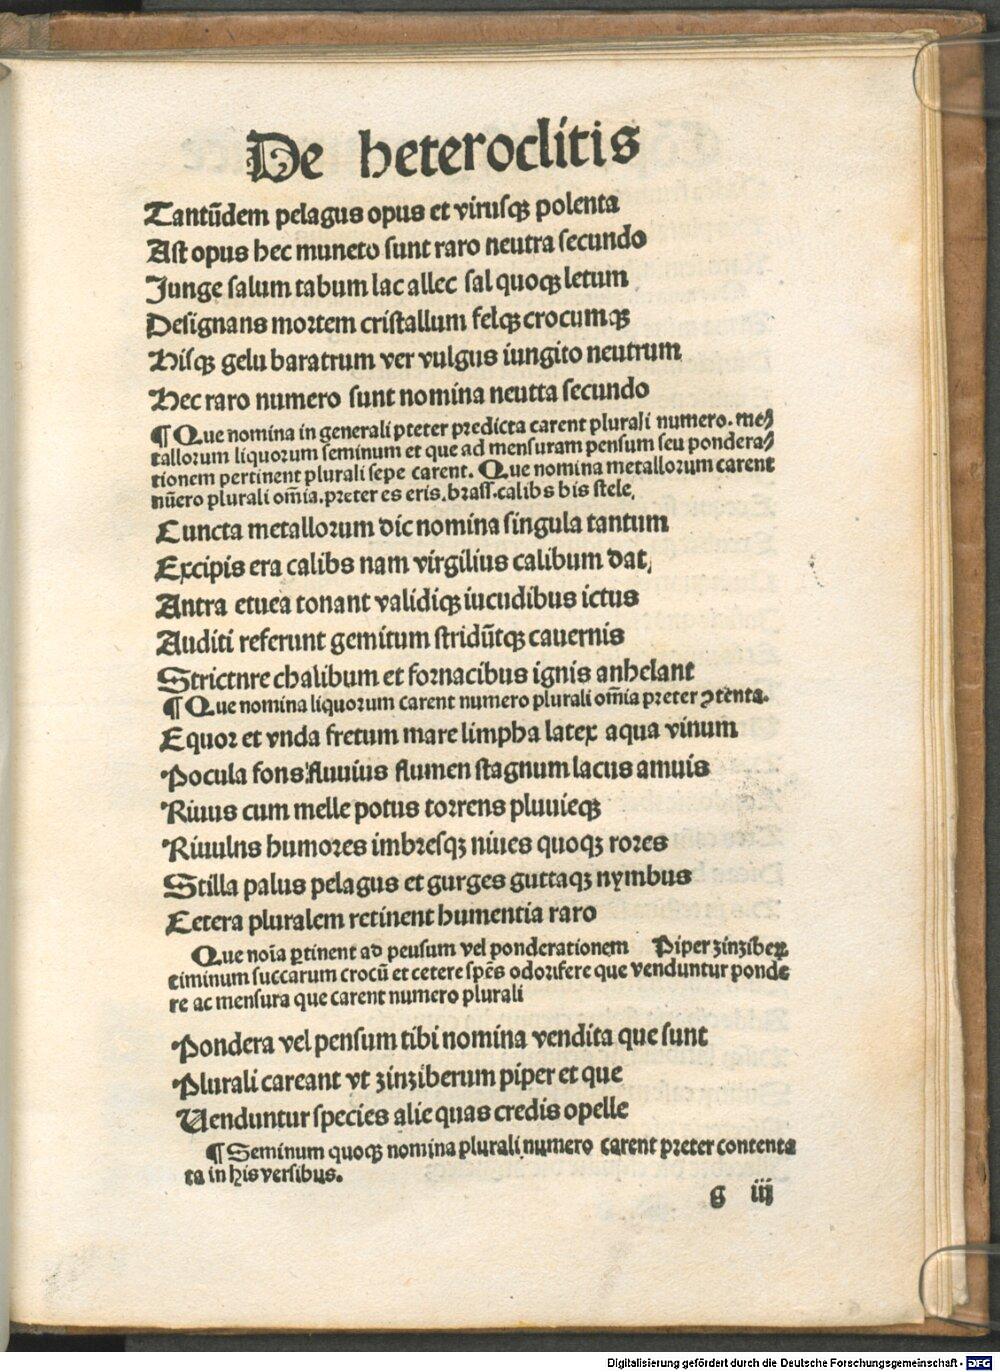 De heteroclitis
Tantūdem pelagus opus et virusqꝫ polenta
Ast opus hec muneto sunt raro neutra secundo
Junge salum tabum lac allec sal quoqꝫ letum
Designans mortem cristallum felqꝫ crocumqꝫ
Hisqꝫ gelu baratrum ver vulgus iungito neutrum
Hec raro numero sunt nomina neutta secundo
¶ Que nomina in generali pteter predicta carent plurali numero. me⸗
tallorum liquorum seminum et que ad mensuram pensum seu pondera⸗
tionem pertinent plurali sepe carent. Que nomina metallorum carent
nūero plurali om̄ia. preter es eris. brass. calibs bis stele,
Cuncta metallorum dic nomina singula tantum
Excipis era calibs nam virgilius calibum dat,
Antra etnea tonant validiqꝫ iucudibus ictus
Auditi referunt gemitum stridūtqꝫ cauernis
Strictnre chalibum et fornacibus ignis anhelant
¶ Que nomina liquorum carent numero plurali om̄ia preter ꝯtenta.
Equor et vnda fretum mare limpha latex aqua vinum
Pocula fons fluuius flumen stagnum lacus amuis
Riuus cum melle potus torrens pluuieqꝫ
Riuulns humores imbresqꝫ niues quoqꝫ rores
Stilla palus pelagus et gurges guttaqꝫ nymbus
Cetera pluralem retinent humentia raro
Que noīa ꝑtinent ad peusum vel ponderationem Piper zinziber
ciminum succarum crocū et cetere spēs odorifere que venduntur ponde
re ac mensura que carent numero plurali
Pondera vel pensum tibi nomina vendita que sunt
Plurali careant vt zinziberum piper et que
Uenduntur species alie quas credis opelle
¶ Seminum quoqꝫ nomina plurali numero carent preter contenta
ta in his versibus.
g iij
Digitalisierung gefördert durch die Deutsche Forschungsgemeinschaft - DFG